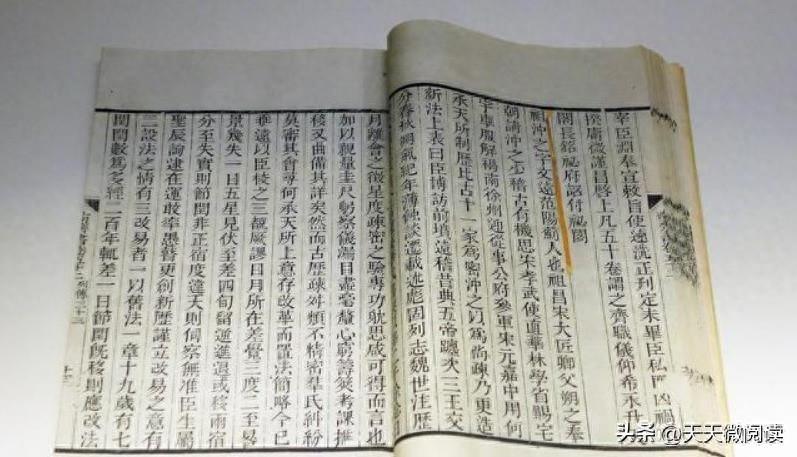 宰臣淵奉宣敕旨使速洗正刊定未畢臣私門凶禍
揆庸微謹冒啓上凡五十卷謂之齊職儀仰希永升
閣長銘祕府詔付祕閣
祖沖之字文遠范陽薊人也祖昌宋大匠卿父朔之奉
朝請沖之少稽古有機思宋孝武使直華林學省賜宅
宇車服解褐南徐州迎從事公府參軍宋元嘉中用何
承天所制歷比古十一家爲密沖之以爲尚疎乃更造
新法上表曰臣博訪前墳遠稽昔典五帝躔次三王交
分春秋朔氣紀年薄蝕談遷載述彪固列志魏世注歷
月離會之徵星度疎密之驗專功耽思咸可得而言也
加以親量圭尺躬察儀漏目盡毫釐心窮籌筴考課推
移又曲備其詳矣然而古歷疎舛類不精密羣氏糾紛
莫審其會尋何承天所上意存改革而置法簡略今已
乖遠以臣校之三覩厥謬日月所在差覺三度二至晷
景幾失一日五星見伏至差四旬留逆進退或移兩宿
分至失實則節閏非正宿度違天則伺察無準臣生屬
聖辰詢逮在運敢率愚瞽更創新歷謹立改易之意有
二設法之情有三改易者一以舊法一章十九歲有七
閏閏數爲多經二百年輒差一日節閏既移則應改法
列傳三十三
头条 @天天微阅读